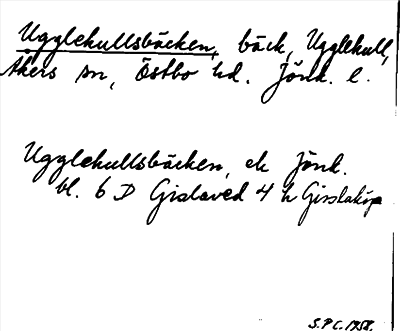 Ugglekullsbäcken, bäck, Ugglekull,
Åkers sn, Östbo hd. Jönk. l.
Ugglekullsbäcken, ek Jönk.
bl. 6 D Gislaved 4 h Gisslaköp
S.P.C. 1958.